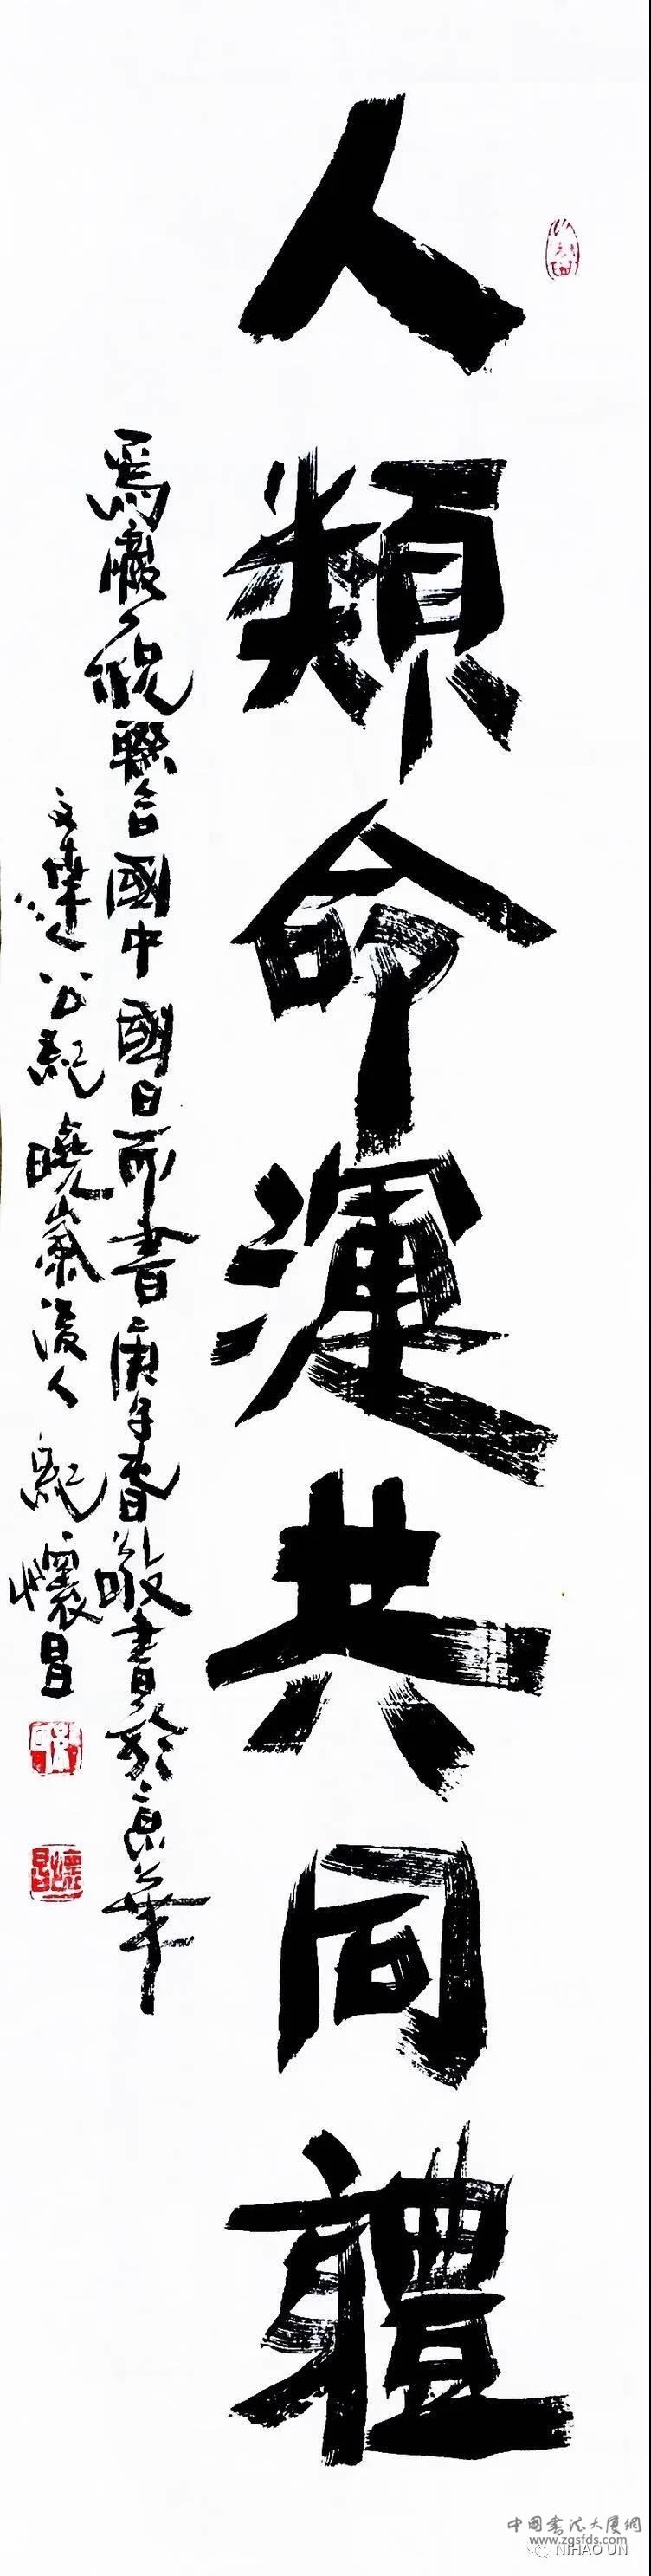 人類命運共同軆
為慶祝聯合國中國日而書庚子春敬書於京華
文達公紀曉嵐後人紀懷昌
懷昌
中國書法大廈網
www.zgsfds.com
NIHAO UN